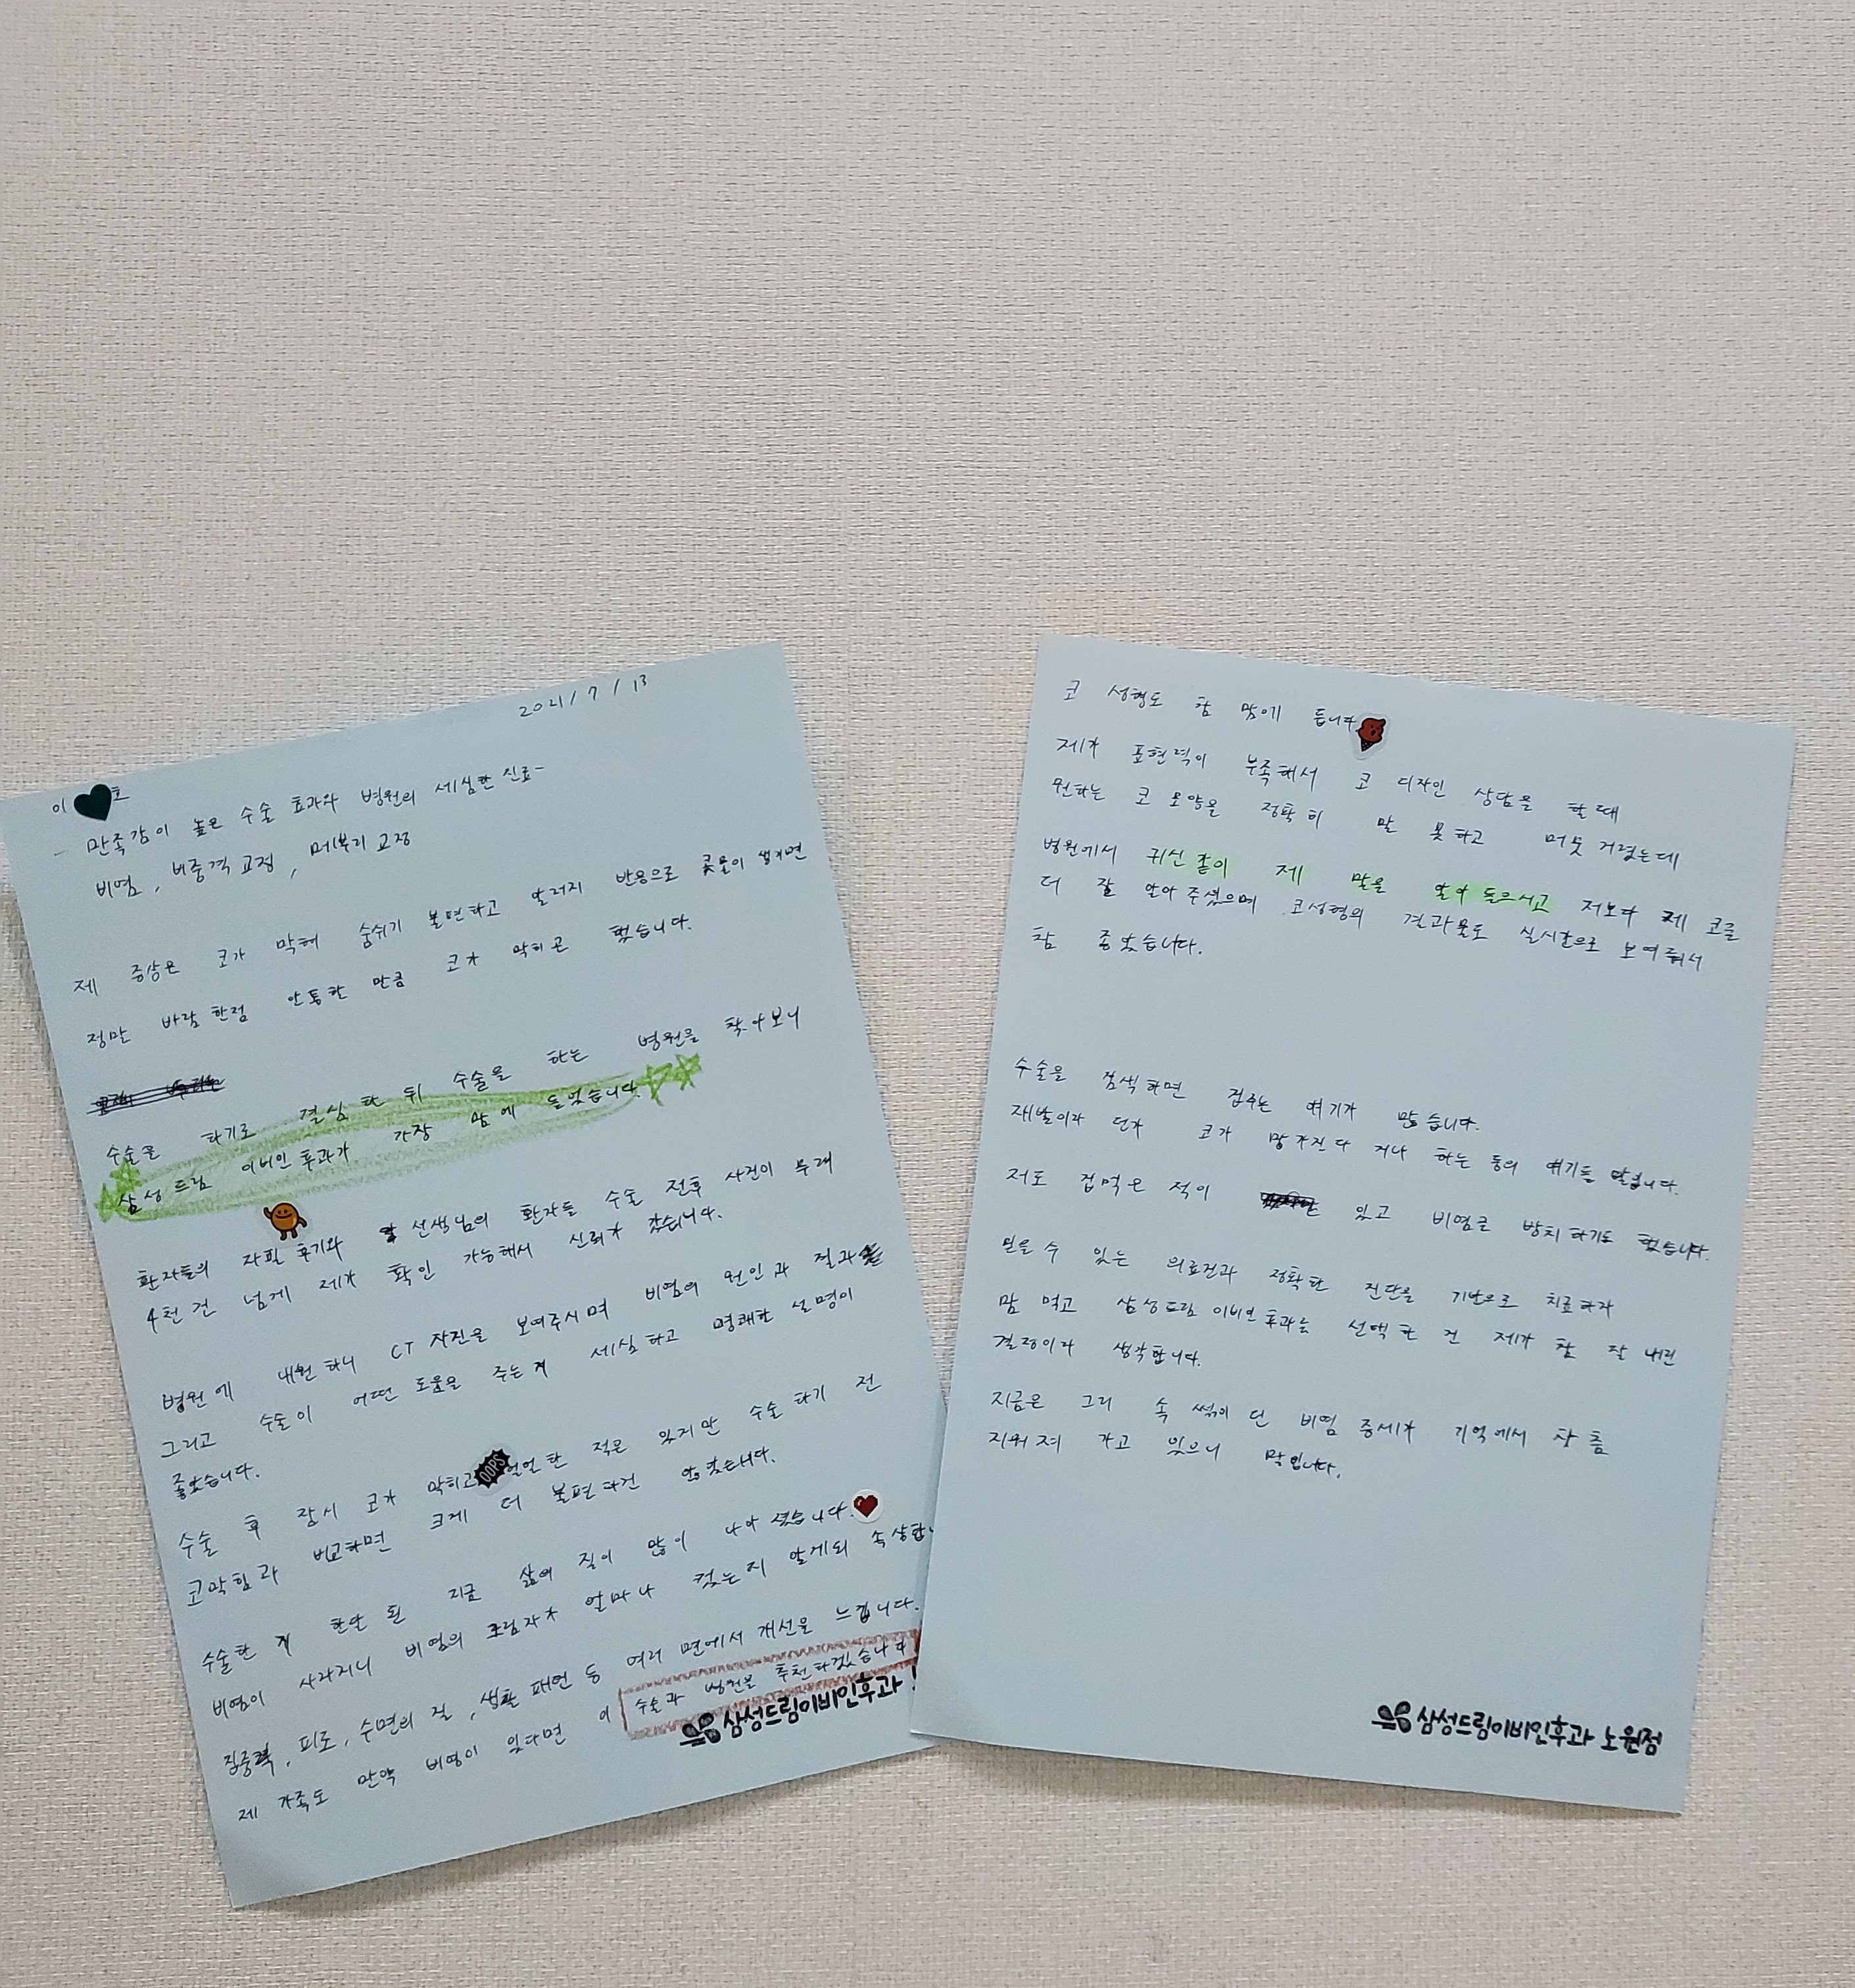 2021 / 7 / 13
이 호
- 만족감이 높은 수술 효과와 병원의 세심한 진료 -
비염, 비중격 교정, 매부리 교정
제 증상은 코가 막혀 숨쉬기 불편하고 알러지 반응으로 콧물이 생기면
정말 바람 한점 안통할 만큼 코가 막히곤 했습니다.
수술을 하기로 결심 한 뒤 수술을 하는 병원을 찾아보니
삼성 드림 이비인후과가 가장 맘에 들었습니다.
환자들의 자필 후기와 선생님의 환자들 수술 전후 사진이 무려
4천 건 넘게 제가 확인 가능해서 신뢰가 갔습니다.
병원에 내원하니 CT 사진을 보여주시며 비염의 원인과 결과
그리고 수술이 어떤 도움을 주는지 세심하고 명쾌한 설명이
좋았습니다.
수술 후 잠시 코가 막히고 OOPS 얼얼한 적은 있지만 수술 하기 전
코막힘과 비교하면 크게 더 불편하건 않았습니다.
수술한 지 한달 된 지금 삶의 질이 많이 나아 졌습니다.
비염이 사라지니 비염의 그림자가 얼마나 컸는지 알게되 속상합니
집중력, 피로, 수면의 질, 생활 패턴 등 여러 면에서 개선을 느낍니다.
제 가족도 만약 비염이 있다면 이 수술과 병원을 추천하겠습니다
삼성드림이비인후과
코 성형도 참 맘에 듭니다
제가 표현력이 부족해서 코 디자인 상담을 할 때
원하는 코 모양을 정확히 말 못하고 머뭇 거렸는데
병원에서 귀신 같이 제 말을 알아 들으시고 저보다 제 코를
더 잘 알아 주셨으며 코성형의 결과물도 실시간으로 보여줘서
참 좋았습니다.
수술을 검색하면 겁주는 얘기가 많습니다.
재발이라 던가 코가 망가진다 거나 하는 등의 얘기들 말입니다.
저도 겁먹은 적이 있고 비염을 방치하기도 했습니다.
믿을 수 있는 의료진과 정확한 진단을 기반으로 치료하자
맘 먹고 삼성드림 이비인후과를 선택한 건 제가 참 잘 내린
결정이라 생각합니다.
지금은 그리 속 썩이던 비염 증세가 기억에서 차츰
지워져 가고 있으니 말입니다.
삼성드림이비인후과 노원점